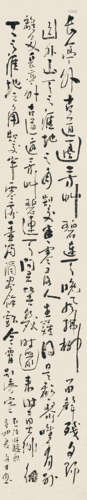 長亭外古道邊芳草碧連天晚風拂柳笛聲殘夕陽
山外山天之涯地之角知交半零落人生難得是歡聚惟有別
離多長亭外古道邊芳草碧連天問君此去幾時還來時莫徘徊
天之涯地之角知交半零落一壺濁酒盡餘歡今宵別夢寒